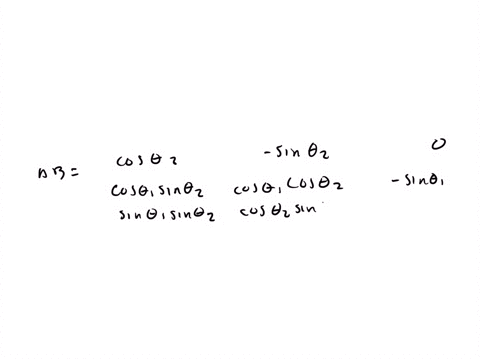 AB = cos θ₂ -sin θ₂ 0
cosθ₁ sinθ₂ cosθ₁ cosθ₂ -sinθ₁
sinθ₁ sinθ₂ cosθ₂ sin